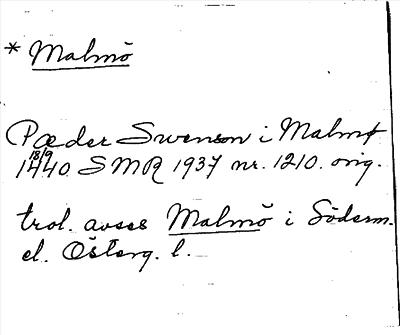 * Malmö
Pæder Swenson i Malmø
18/9 1440 SMR 1937 nr. 1210. orig.
trol. avses Malmö i Söderm.
el. Österg. l.